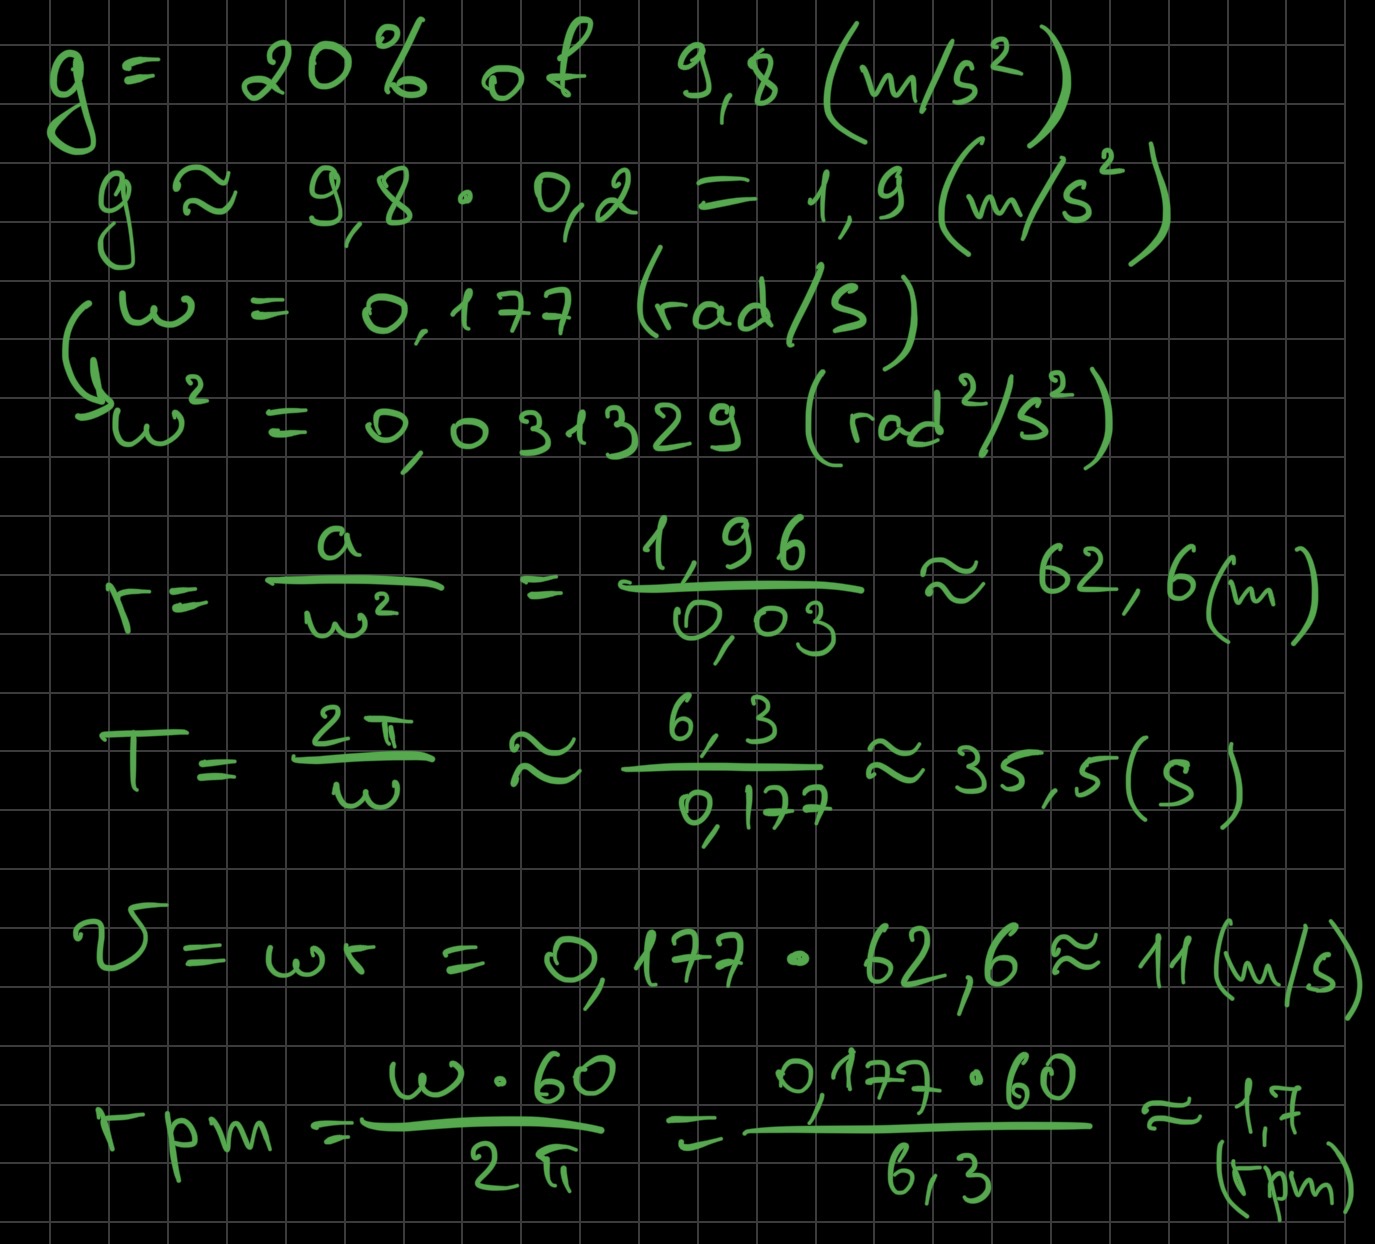 g = 20% of 9,8 (m/s²)
g ≈ 9,8 · 0,2 = 1,9 (m/s²)
ω = 0,177 (rad/s)
ω² = 0,031329 (rad²/s²)
r = a/ω² = 1,96/0,03 ≈ 62,6 (m)
T = 2π/ω ≈ 6,3/0,177 ≈ 35,5 (s)
v = ωr = 0,177 · 62,6 ≈ 11 (m/s)
rpm = ω · 60/2π = 0,177 · 60/6,3 ≈ 1,7 (rpm)